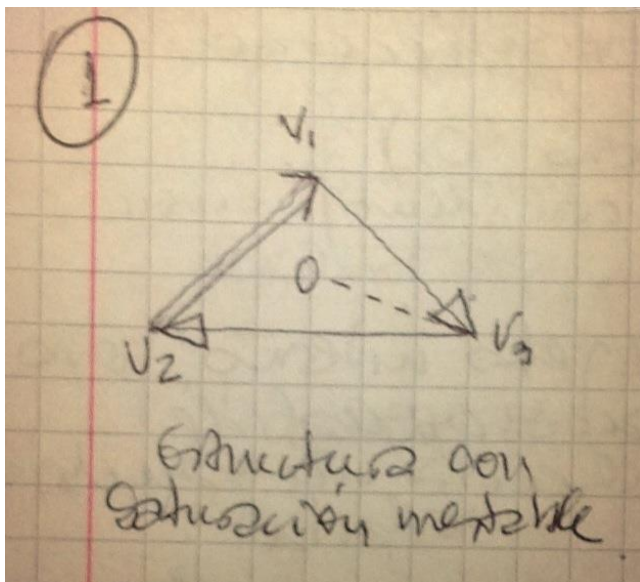 1
V1
0
V2
V3
Estructura con
Saturación inestable.